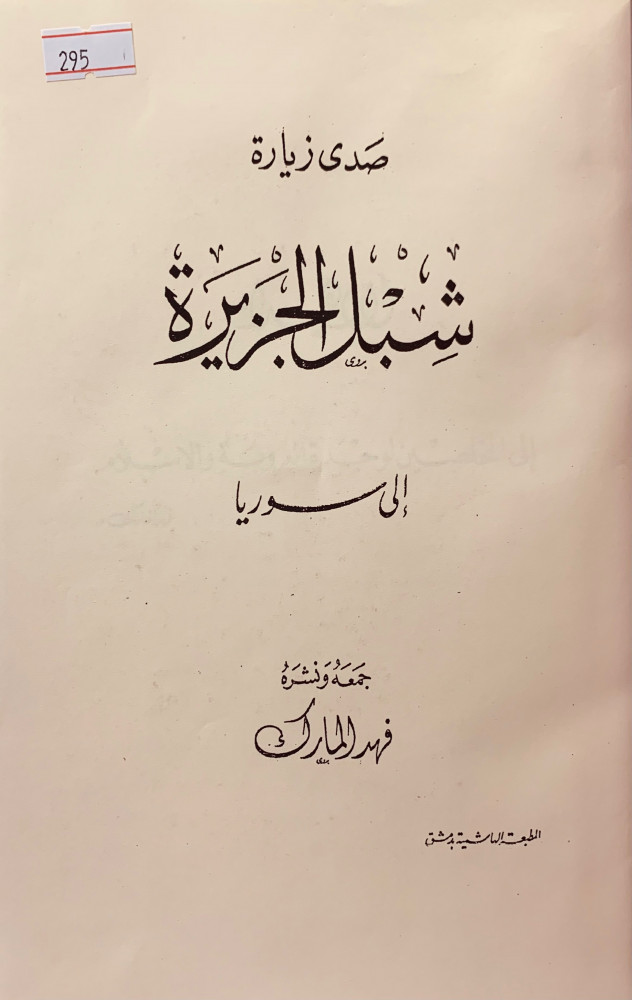 295
صَدى زيارة
شِبْل الجَزيرَة
بدوي
إلى سوريا
جمَعَه وَنشرَهُ
فهد المارك
بدوي
المطبعة الهاشمية بدمشق